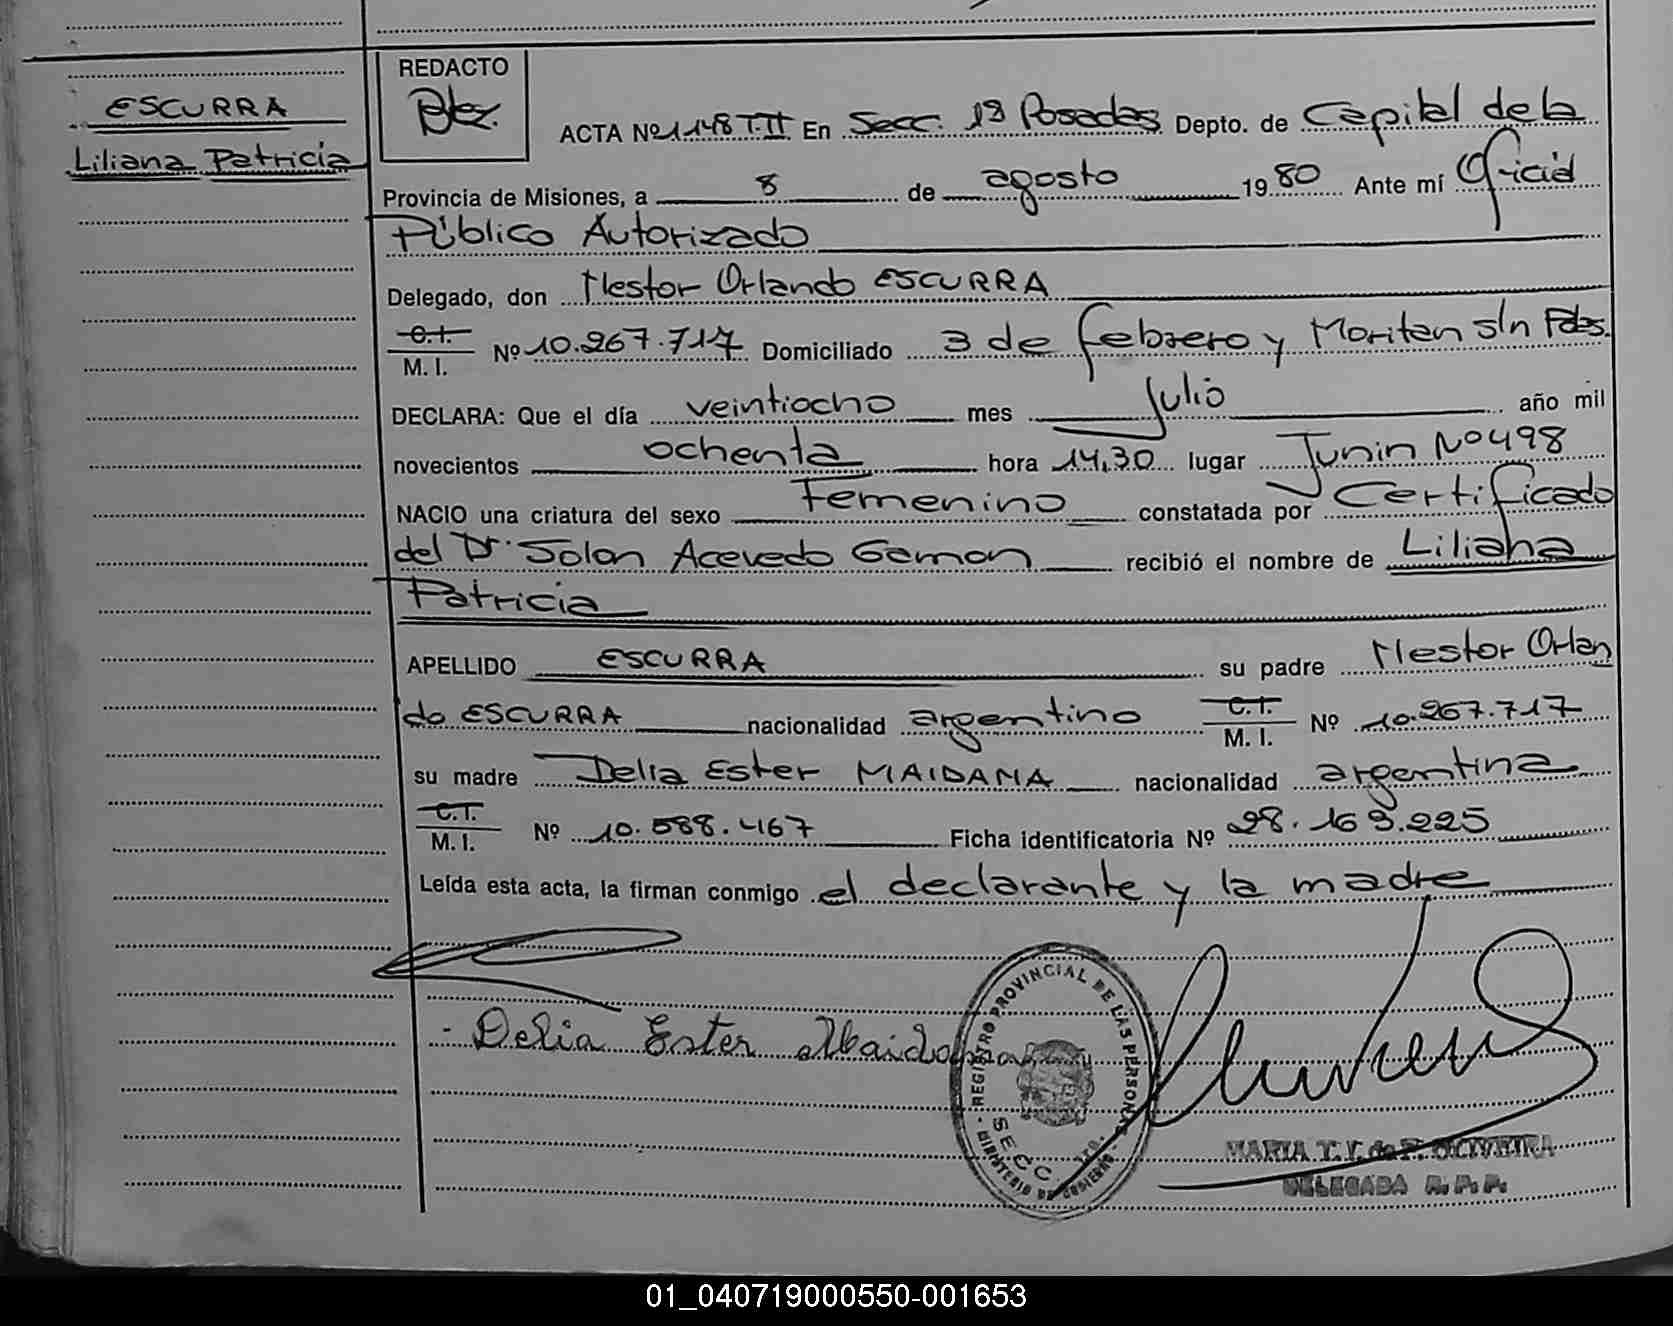 ESCURRA
Liliana Patricia
REDACTO
ACTA Nº 1.148 T.II En Secc. 1ª Posadas Depto. de Capital de la
Provincia de Misiones, a 8 de agosto 1980 Ante mí Oficial
Público Autorizado
Delegado, don Nestor Orlando ESCURRA
C.I.
M. I. Nº 10.267.717 Domiciliado 3 de febrero y Moriten s/n Pdas.
DECLARA: Que el día veintiocho mes Julio año mil
novecientos ochenta hora 14,30 lugar Junin Nº 498
NACIO una criatura del sexo Femenino constatada por Certificado
del Dr. Solon Acevedo Gemon recibió el nombre de Liliana
Patricia
APELLIDO ESCURRA su padre Nestor Orlan
do ESCURRA nacionalidad argentino C.I. M. I. Nº 10.267.717
su madre Delia Ester MAIDANA nacionalidad argentina
C.I.
M. I. Nº 10.588.467 Ficha identificatoria Nº 28.169.225
Leída esta acta, la firman conmigo el declarante y la madre
Delia Ester Maidana
REGISTRO PROVINCIAL DE LAS PERSONAS
MINISTERIO DE GOBIERNO
SECC
MARIA T. V. de F. OLIVEIRA
DELEGADA R. P. P.
01_040719000550-001653